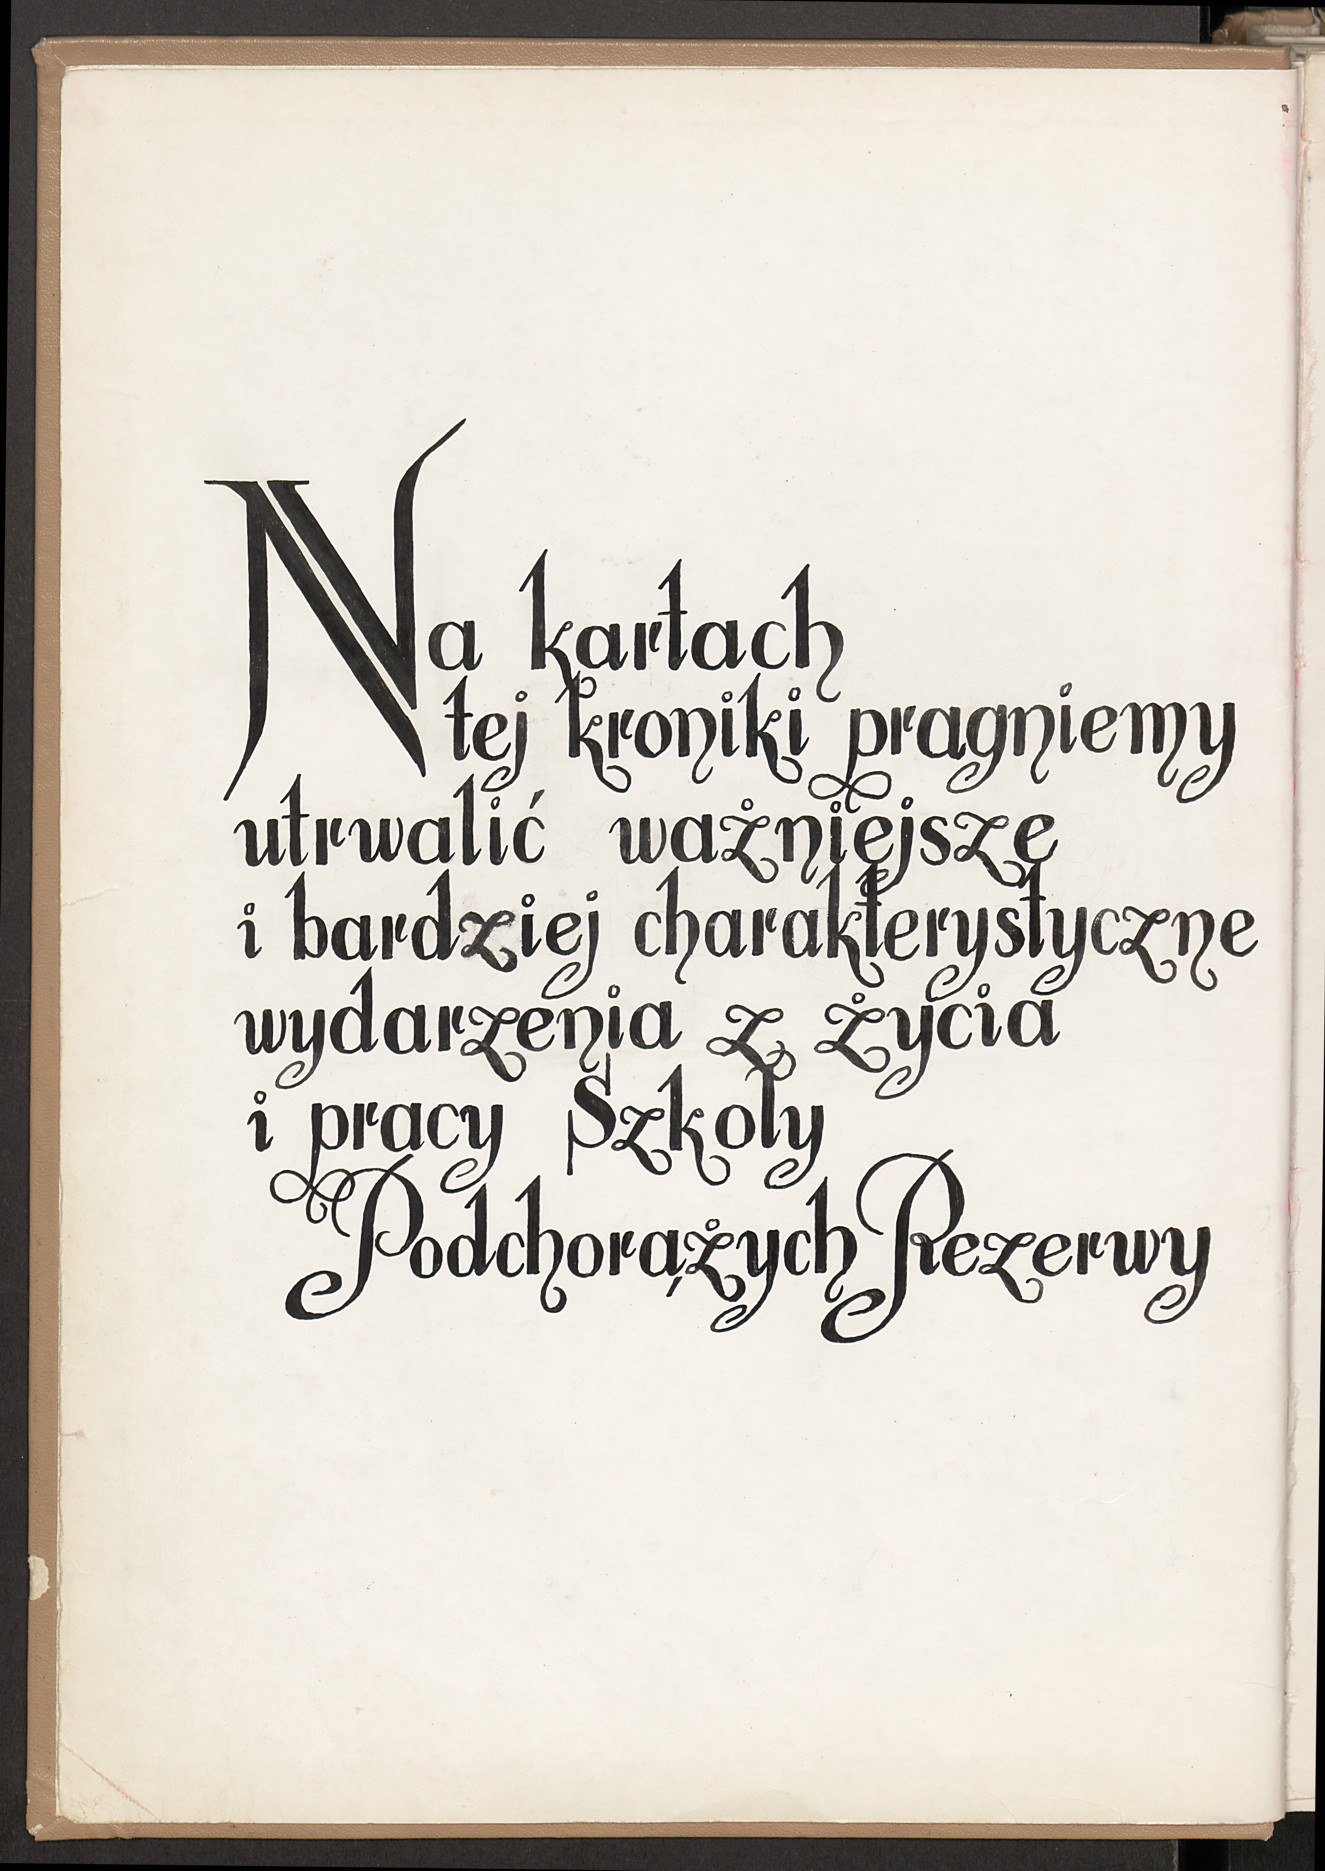 Na kartach
tej kroniki pragniemy
utrwalić ważniejsze
i bardziej charakterystyczne
wydarzenia z życia
i pracy Szkoły
Podchorążych Rezerwy